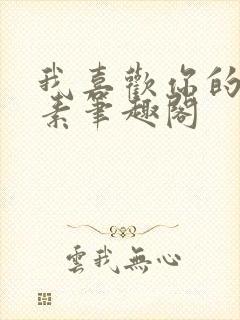 我喜歡你的
素筆趣閣
雲我無心